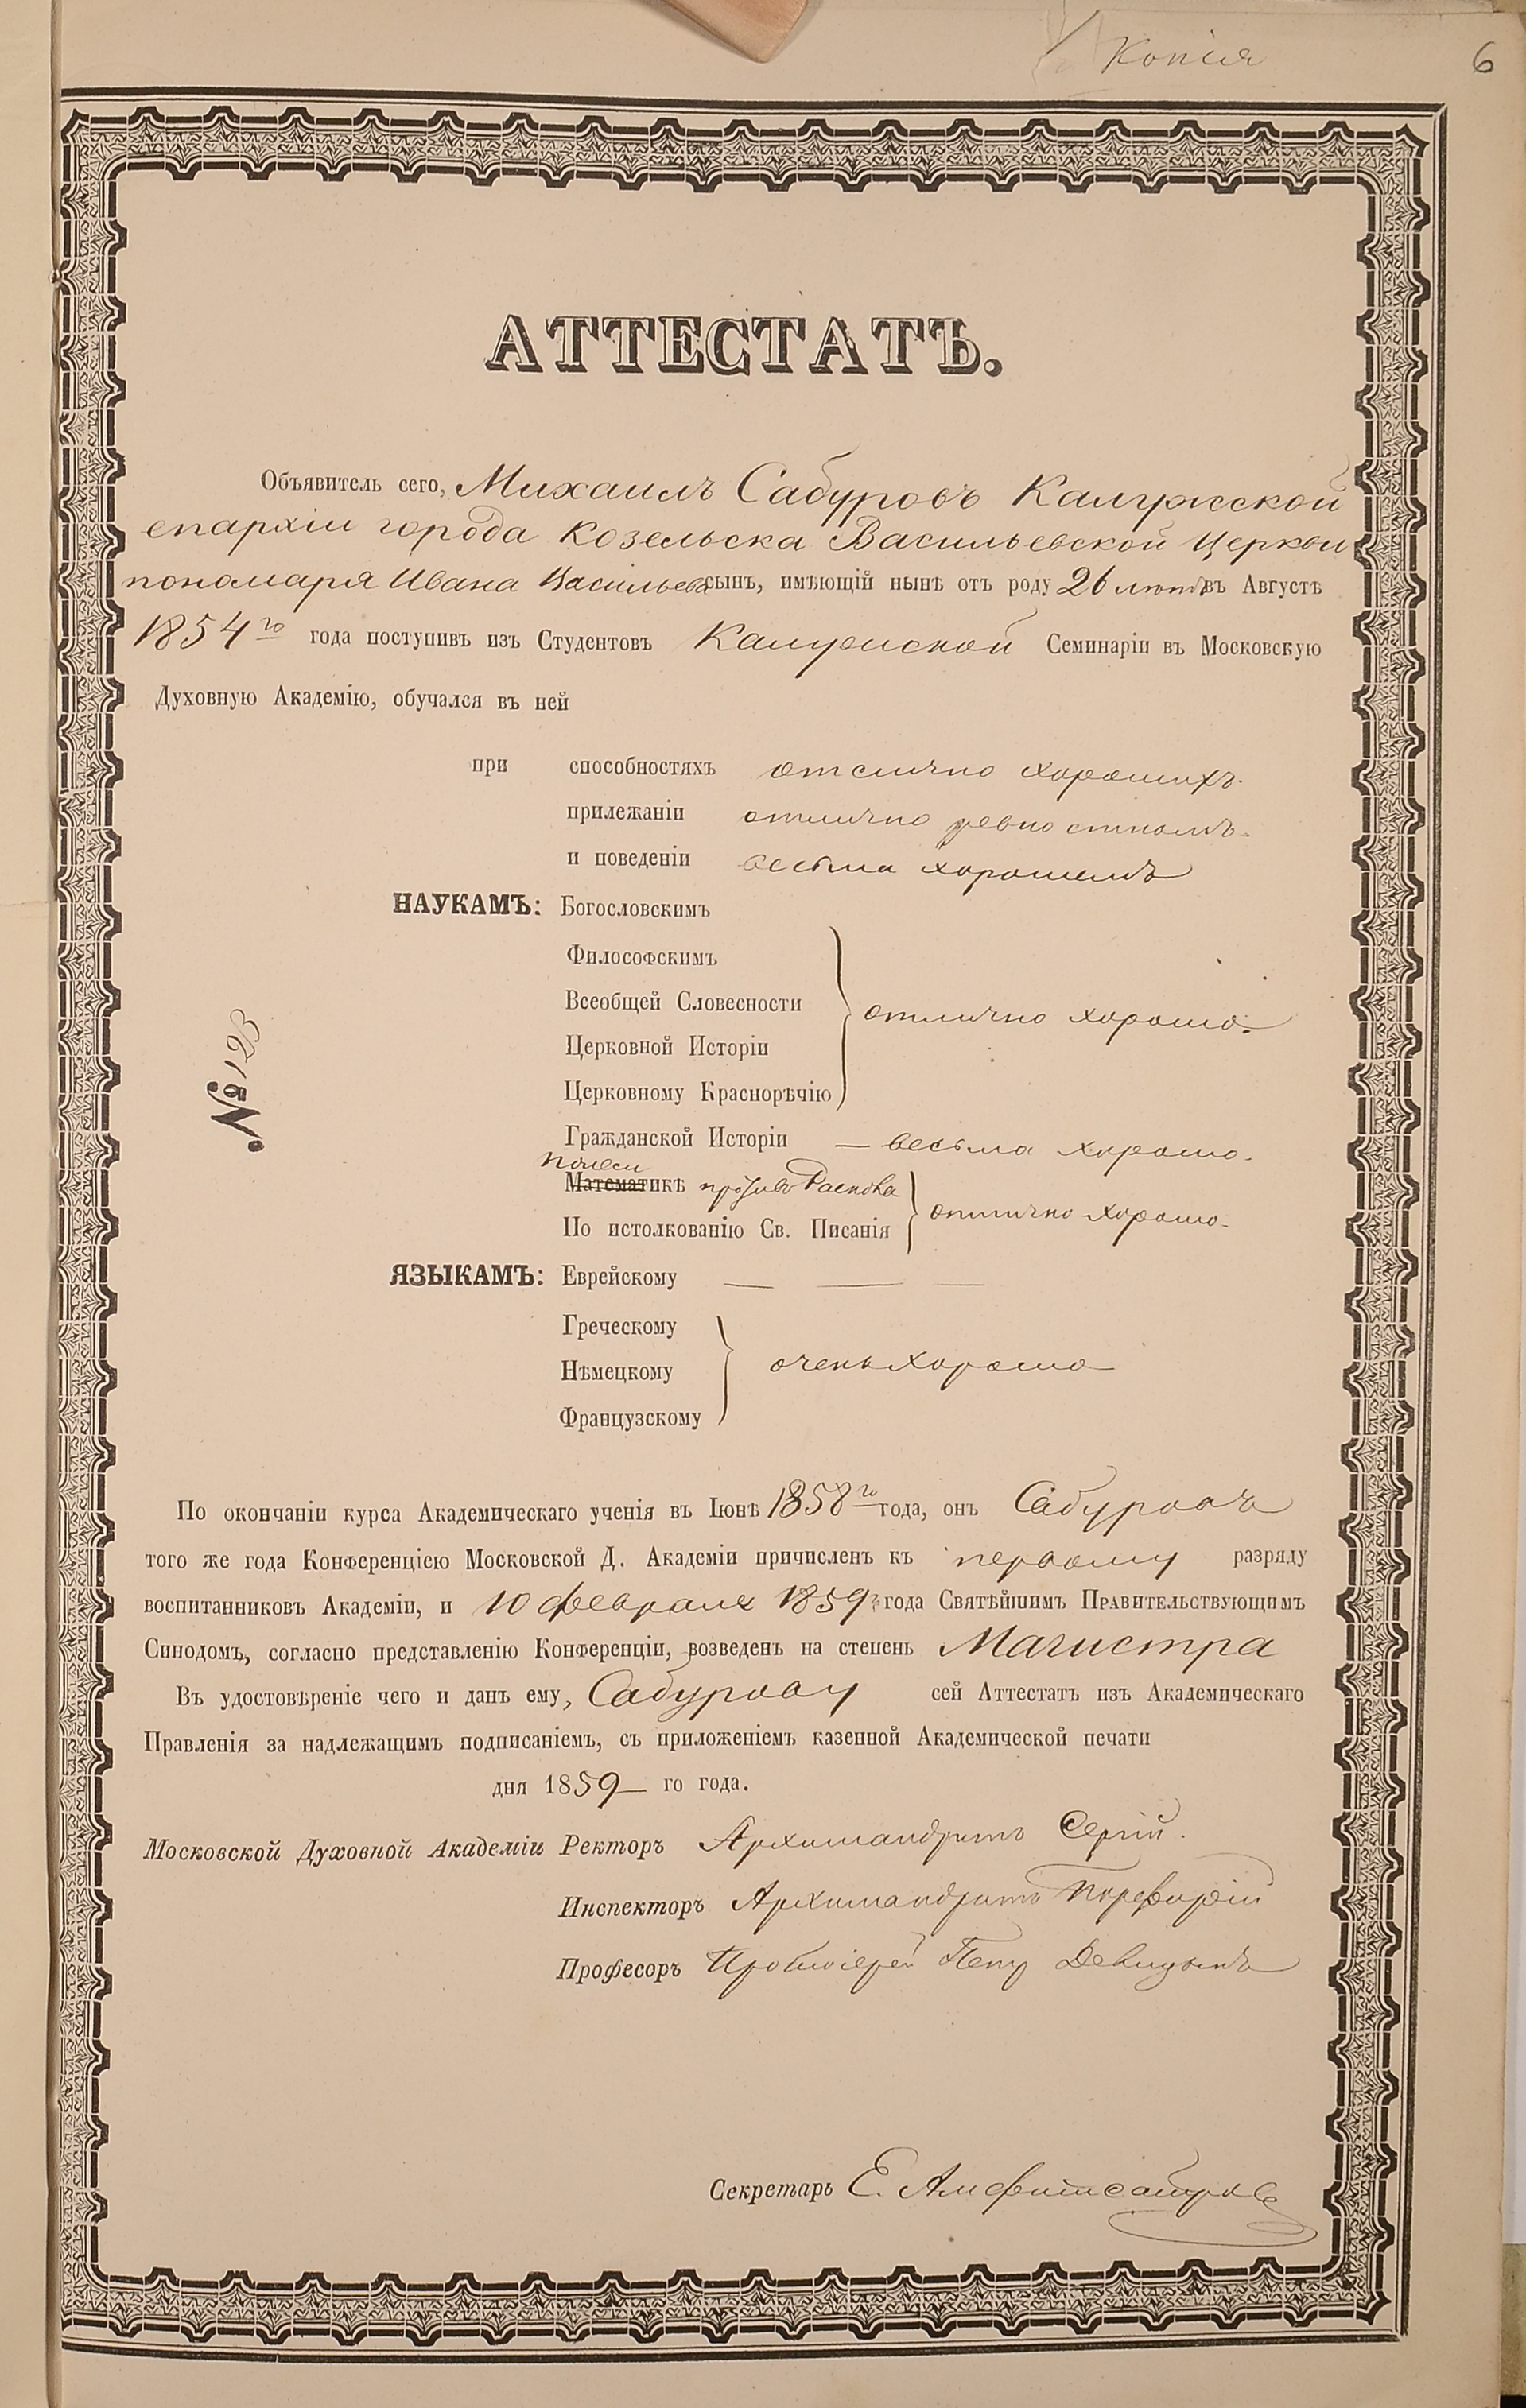 Копія
6
АТТЕСТАТЪ.
Объявитель сего, Михаилъ Сабуровъ Калужской
епархіи города Козельска Васильевской Церкви
пономаря Ивана Васильева сынъ, имѣющій нынѣ отъ роду 26 лѣтъ въ Августѣ
1854го года поступивъ изъ Студентовъ Калужской Семинаріи въ Московскую
Духовную Академію, обучался въ ней
при способностяхъ отлично хорошихъ.
прилежаніи отлично ревностномъ.
и поведеніи весьма хорошемъ
НАУКАМЪ: Богословскимъ
Философскимъ
Всеобщей Словесности
Церковной Исторіи
отлично хорошо.
Церковному Краснорѣчію
Гражданской Исторіи — весьма хорошо.
полеми
Математикѣ противъ Раскола
По истолкованію Св. Писанія
отлично хорошо.
ЯЗЫКАМЪ: Еврейскому — — —
Греческому
Нѣмецкому
Французскому
очень хорошо
№ 123
По окончаніи курса Академическаго ученія въ Іюнѣ 1858го года, онъ Сабуровъ
того же года Конференціею Московской Д. Академіи причисленъ къ первому разряду
воспитанниковъ Академіи, и 10 февраля 1859 года Святѣйшимъ Правительствующимъ
Синодомъ, согласно представленію Конференціи, возведенъ на степень Магистра
Въ удостовѣреніе чего и данъ ему, Сабурову сей Аттестатъ изъ Академическаго
Правленія за надлежащимъ подписаніемъ, съ приложеніемъ казенной Академической печати
дня 1859 го года.
Московской Духовной Академіи Ректоръ Архимандритъ Сергій.
Инспекторъ Архимандритъ Порфирій
Професоръ Протоіерей Петръ Делицынъ
Секретарь Е. Амфитеатровъ